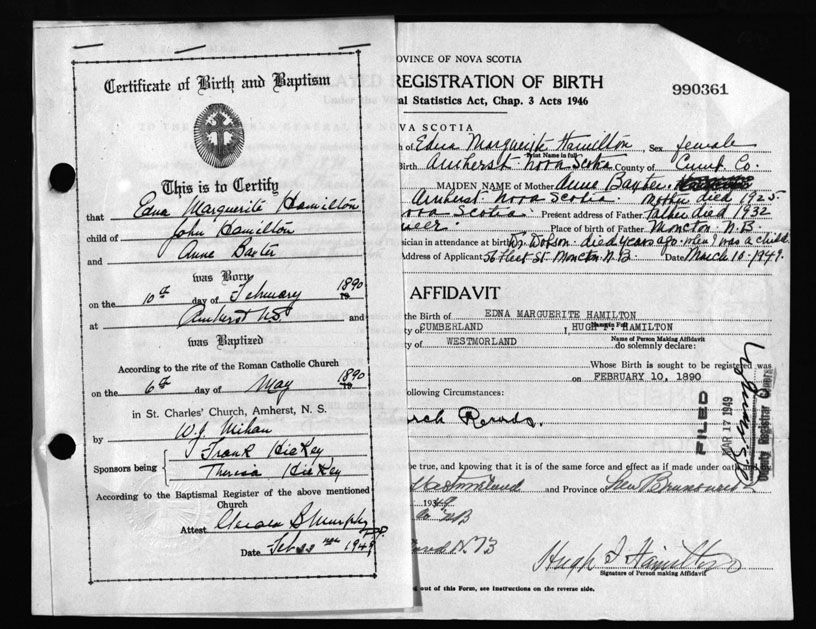 Certificate of Birth and Baptism
This is to Certify
that Edna Marguerite Hamilton
child of John Hamilton
and Anne Baxter
was Born
on the 10th day of February 1890
at Amherst NS and
was Baptized
According to the rite of the Roman Catholic Church
on the 6th day of May 1890
in St. Charles' Church, Amherst, N. S.
by W. J. Mihan
Sponsors being Frank Hickey
Theresa Hickey
According to the Baptismal Register of the above mentioned
Church
Attest Murphy
Date Feb 1949
OVINCE OF NOVA SCOTIA
REGISTRATION OF BIRTH
990361
al Statistics Act, Chap. 3 Acts 1946
VA SCOTIA
of Edna Marguerite Hamilton Sex female
Print Name in full
Birth Amherst Nova Scotia County of Cumb. Co.
MAIDEN NAME of Mother Anne Baxter
Amherst Nova Scotia. Mother died 1925
ova Scotia Present address of Father Father died 1932
Place of birth of Father Moncton N.B.
sician in attendance at birth Dr. Dobson died years ago when I was a child.
Address of Applicant 56 Fleet St. Moncton N.B Date March 10 - 1949.
AFFIDAVIT
the Birth of EDNA MARGUERITE HAMILTON
ty of CUMBERLAND I, HUGH F. HAMILTON
Name of Person Making Affidavit
ty of WESTMORLAND do solemnly declare:
Whose Birth is sought to be registered was
on FEBRUARY 10, 1890
ollowing Circumstances:
urch Records.
FILED
MAR 17 1949
Deputy Registrar General
be true, and knowing that it is of the same force and effect as if made under oath
Westmorland and Province of New Brunswick
1949
NB
N.B
Hugh F Hamilton
Signature of Person making Affidavit
out of this Form, see Instructions on the reverse side.